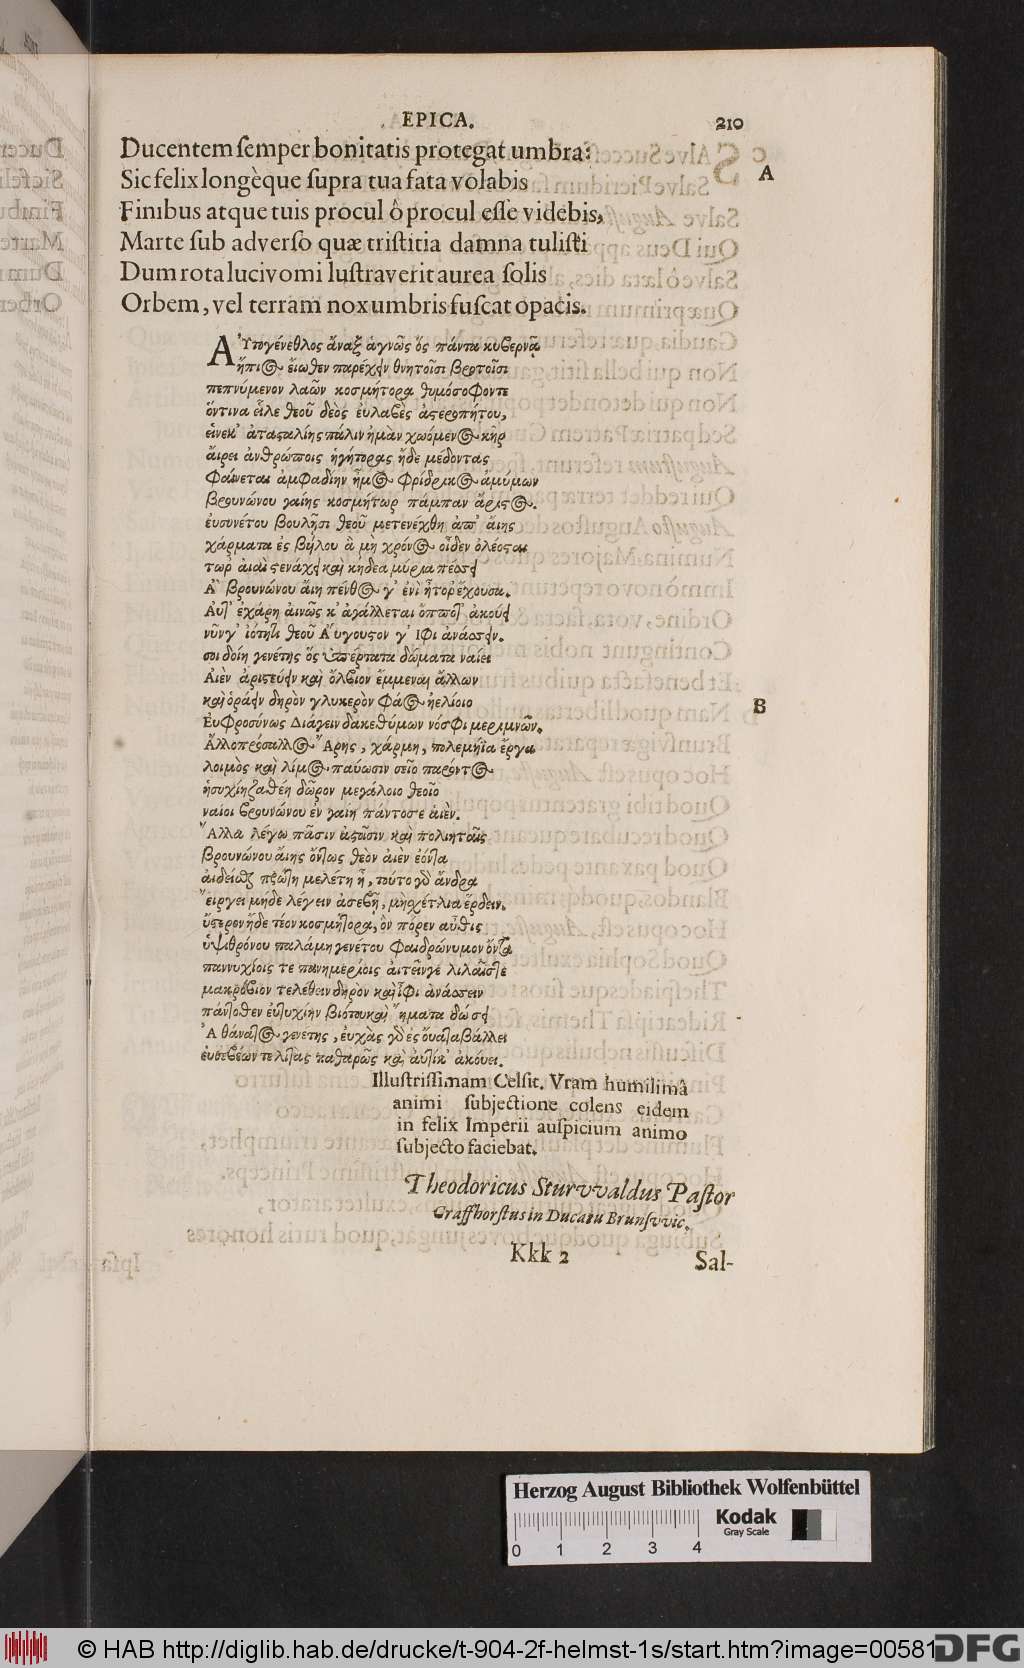 EPICA. 210
Ducentem semper bonitatis protegat umbra:
A
Sic felix longèque supra tua fata volabis
Finibus atque tuis procul ô procul esse videbis,
Marte sub adverso quæ tristitia damna tulisti
Dum rota lucivomi lustraverit aurea solis
Orbem, vel terram nox umbris fuscat opacis.
Αὐτογένεθλος ἄναξ ἁγνῶς ὅς πάντα κυβερνᾷ
ἤπιος εἴωθεν παρέχειν θνητοῖσι βροτοῖσι
πεπνύμενον λαῶν κοσμήτορα θυμόσοφόντε
ὅντινα εἷλε θεοῦ δεὸς εὐλαβὲς ἀστεροπήτου,
εἵνεκ' ἀτασαλίης πάλιν ἠμὰν χωόμενος κῆρ
ἄιρει ἀνθρώποις ἡγήτορας ἤδε μέδοντας
Φαίνεται ἀμφαδίην ἦμος Φρίδρικος ἀμύμων
βρουνώνου γαίης κοσμήτωρ πάμπαν ἄριστος.
ἐυσυνέτου βουλῆσι θεοῦ μετενέχθη ἀπ' ἄιης
χάρματα ἐς βήλου ἃ μὴ χρόνος οἶδεν ὀλέσαι
τωρ αιαῖ στενάχει καὶ κήδεα μύρια πέσσει
Ἀ βρουνώνου ἄιη πένθος γ' ἐνὶ ἦτορ ἔχουσα.
Αὐτ' ἐχάρη ἀινῶς κ' ἀγάλλεται ὁπποτ' ἀκούει
νῦν γ' ἰότητι θεοῦ Ἄυγουστον γ' ΙΦι ἀνάσσειν.
σοι δοίη γενέτης ὅς ὑπέρτατα δώματα ναίει
Αιὲν ἀριστεύειν καὶ ὄλβιον ἔμμεναι ἄλλων
καὶ ὁράειν δηρὸν γλυκερὸν φάος ἠελίοιο
B
Εὐφροσύνως Διάγειν δακεθύμων νόσφι μεριμνῶν.
Ἀλλοπρόσαλλος Ἄρης, χάρμη, πολεμήϊα ἔργα
λοιμὸς καὶ λίμος παύωσιν σεῖο παρόντος
ἡσυχίη ζαθέη δῶρον μεγάλοιο θεοῖο
ναίοι βρουνώνου ἐν γαίη πάντοσε ἀιὲν.
Ἄλλα λέγω πᾶσιν ἀστοῖσιν καὶ πολιηταῖς
βρουνώνου ἄιης ὄντως θεὸν ἀιὲν ἐόντα
ἀιδείσθαι πρώτη μελέτη ἦ, τούτο γὰρ ἄνδρα
Ἔιργει μήδε λεγειν ἀσεβῆ, μὴ χέτλια ἔρδειν.
ὕστερον ἤδε τέον κοσμήτορα, ὃν πόρεν αὖθις
ὑψιθρόνου παλάμη γενέτου Φαιδρώνυμον ὄντα
παννυχίοις τε πανημερίοις ἀιτεῖνγε λιλαῖσθε
μακρόβιον τελέθειν δηρὸν καὶ ἶφι ἀνάσσειν
πάντοθεν ἐυτυχίην βιότου καὶ ἤματα δώσει
Ἀθάνατος γενέτης, ἐυχὰς γὰρ ἐς ὄυατα βάλλει
ἐυσεβέων τελίτὰς καθαρῶς καὶ ἀυτίκ' ἀκόυει.
Illustrissimam Celsit. Vram humilimâ
animi subjectione colens eidem
in felix Imperii auspicium animo
subjecto faciebat.
Theodoricus Sturvvaldus Pastor
Graffhorstus in Ducatu Brunsvvic.
Kkk 2 Sal-
Herzog August Bibliothek Wolfenbüttel
Kodak
Gray Scale
0 1 2 3 4
© HAB http://diglib.hab.de/drucke/t-904-2f-helmst-1s/start.htm?image=00581
DFG